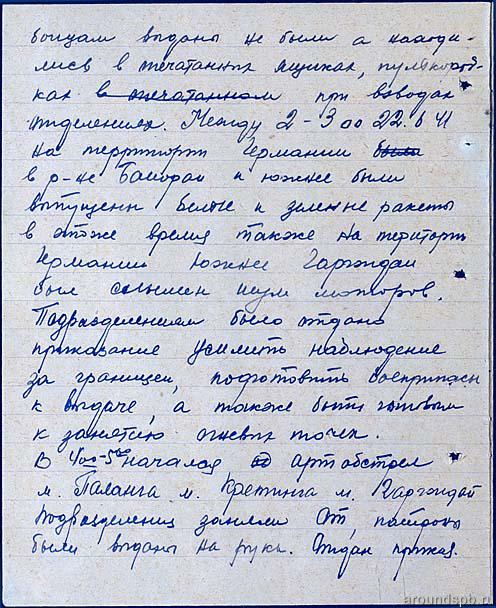 бойцам выданы не были а находи-
лись в печатанных ящиках, пулькород-
ках в печатанном при взводах
отделениях. Между 2-3 00 22.6 41
на территории Германии были
в р-не Байорай и южнее были
выпущенн белые и зеленне ракеты
в этоже время также на територи
Германии южнее Гаргждай
был слышен шум моторов.
Подразделениям было отдано
приказание усилить наблюдение
за границей, подготовить боеприпасы
к выдаче, а также быть готовым
к занятию огневых точек.
В 4 00-5 00 начался артобстрел
м. Паланга м. Кретинга м. Гаргждай
подразделения заняли ОТ, патроны
были выданы на руки. Отдан приказ.
aroundspb.ru